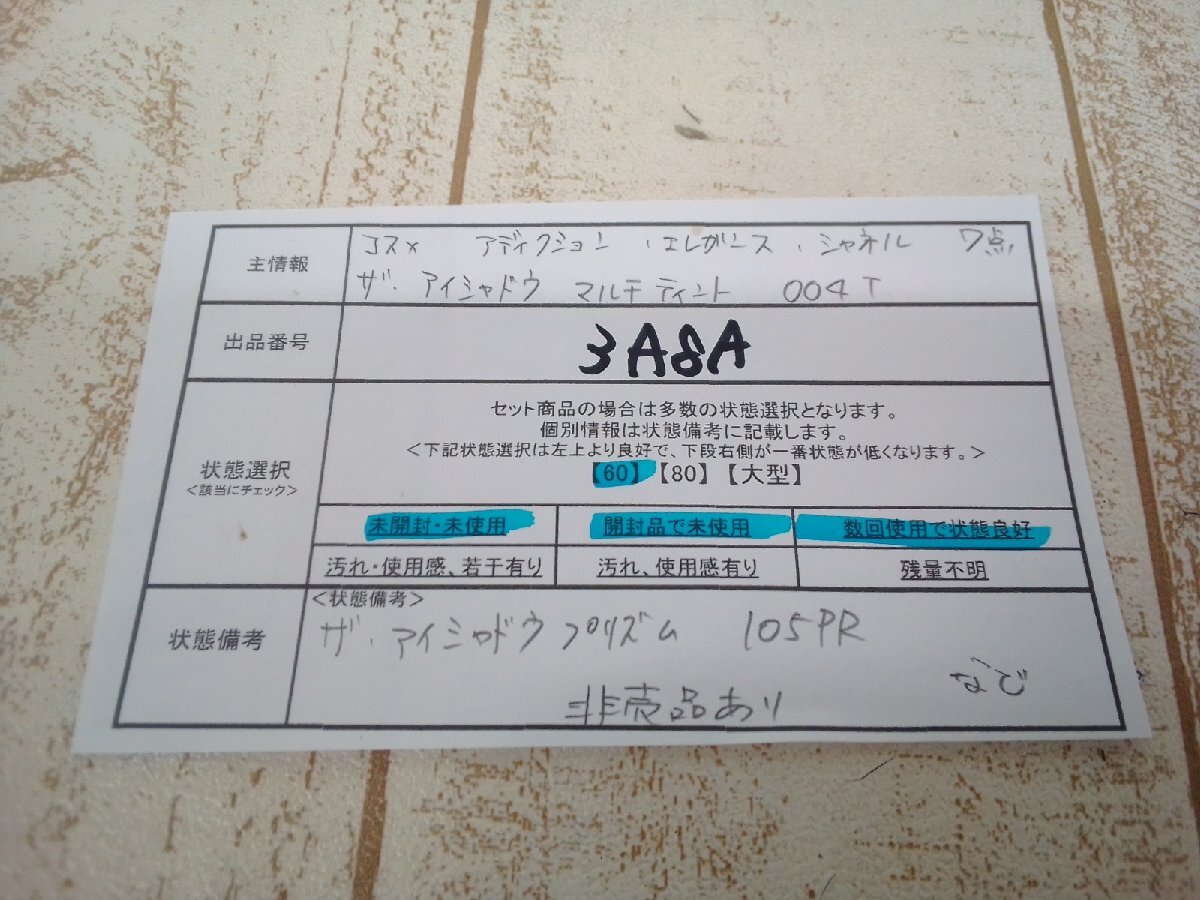 主情報
コスメ アディクション・エレガンス・シャネル 7点
ザ・アイシャドウ マルチティント 004T
出品番号
3A8A
状態選択
<該当にチェック>
セット商品の場合は多数の状態選択となります。
個別情報は状態備考に記載します。
<下記状態選択は左上より良好で、下段右側が一番状態が低くなります。>
【60】【80】【大型】
未開封・未使用 開封品で未使用 数回使用で状態良好
汚れ・使用感、若干有り 汚れ、使用感有り 残量不明
状態備考
<状態備考>
ザ・アイシャドウ プリズム 105PR
など
非売品あり